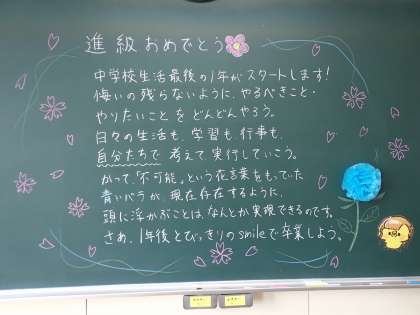 進級おめでとう
中学校生活最後の1年がスタートします!
悔いの残らないように、やるべきこと・
やりたいことをどんどんやろう。
日々の生活も、学習も、行事も、
自分たちで考えて実行していこう。
かつて、「不可能」という花言葉をもっていた
青いバラが、現在存在するように、
頭に浮かぶことは、なんとか実現できるのです。
さあ、1年後とびっきりのsmileで卒業しよう。